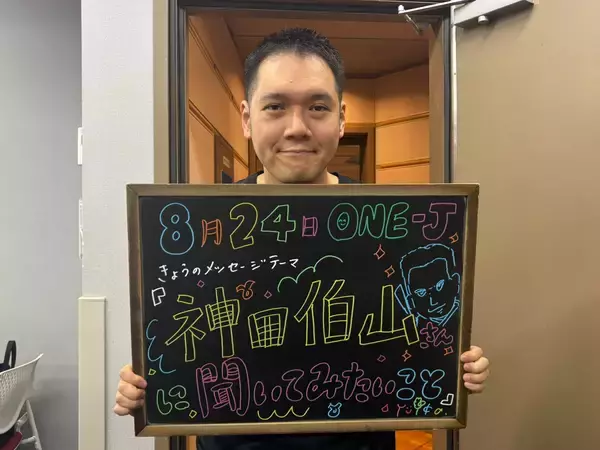 8月24日 ONE-J
きょうのメッセージテーマ
『神田伯山さん
に聞いてみたいこと